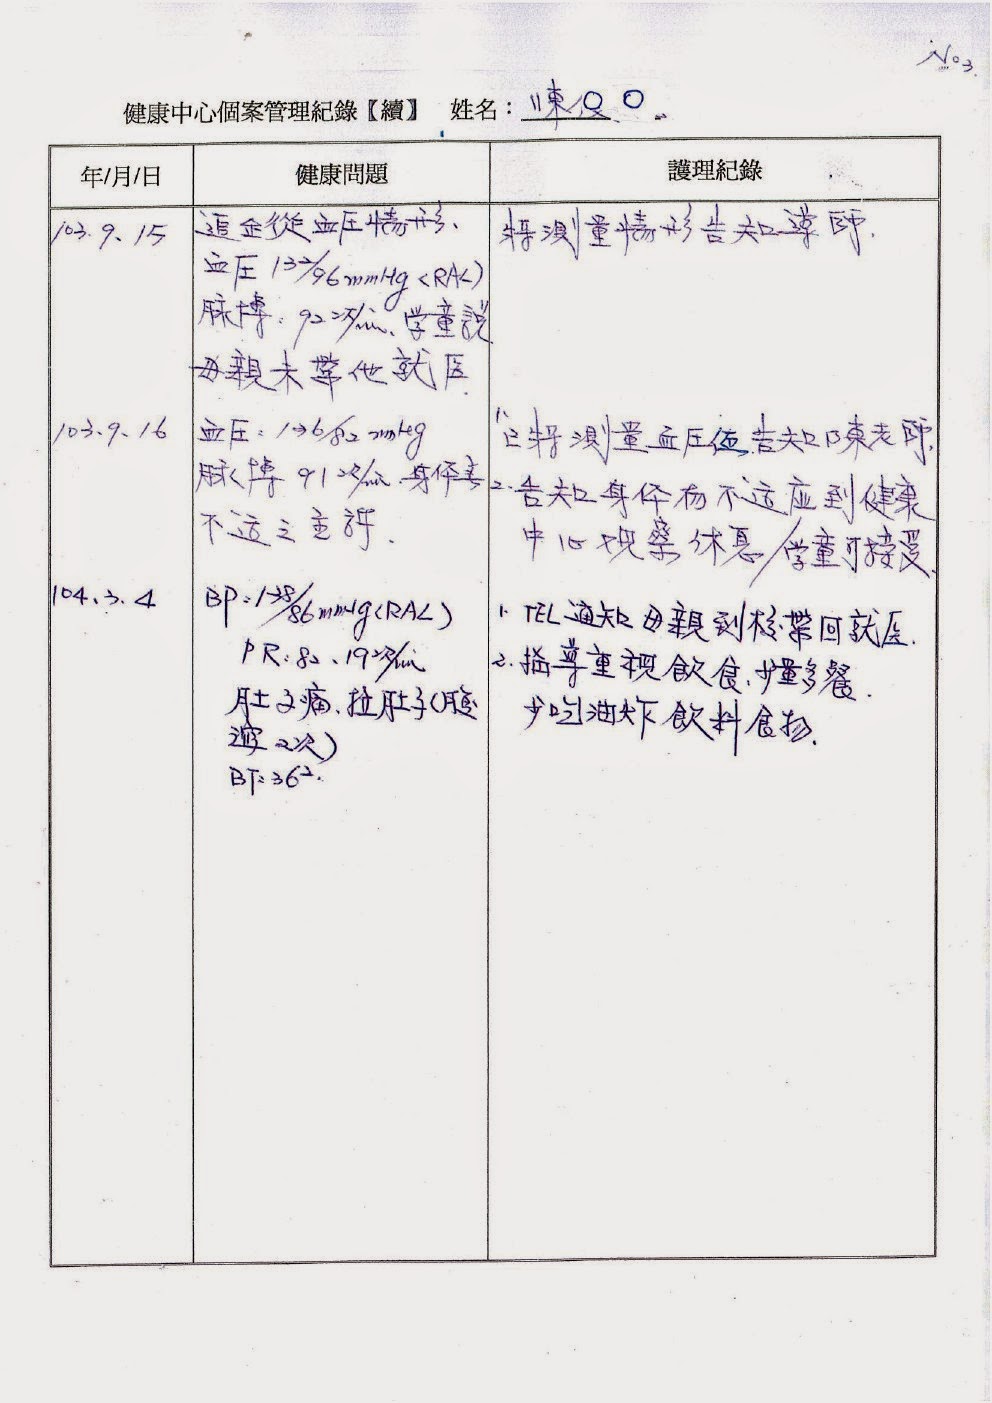 No3.
健康中心個案管理紀錄【續】 姓名：陳俊〇
年/月/日 健康問題 護理紀錄
103.9.15
追 血压情形、
血压 132/96mmHg (RAL)
脉搏：92次/min、学童説
母親未帶他就医
將測量情形告知導師.
103.9.16
血压：136/82 mmHg
脉搏 91次/min.身体
不适之主訴.
1.已將測量血压值告知陳老師.
2.告知身体 不适应到健康
中心 休息/学童可接受.
104.3.4
BP：138/86mmHg(RAL)
PR：82、19次/min
肚子痛、拉肚子(腹
瀉2次)
BT：36².
1. TEL通知母親到校帶回就医.
2. 指導重視飲食.少量多餐.
少吃油炸飲料食物.